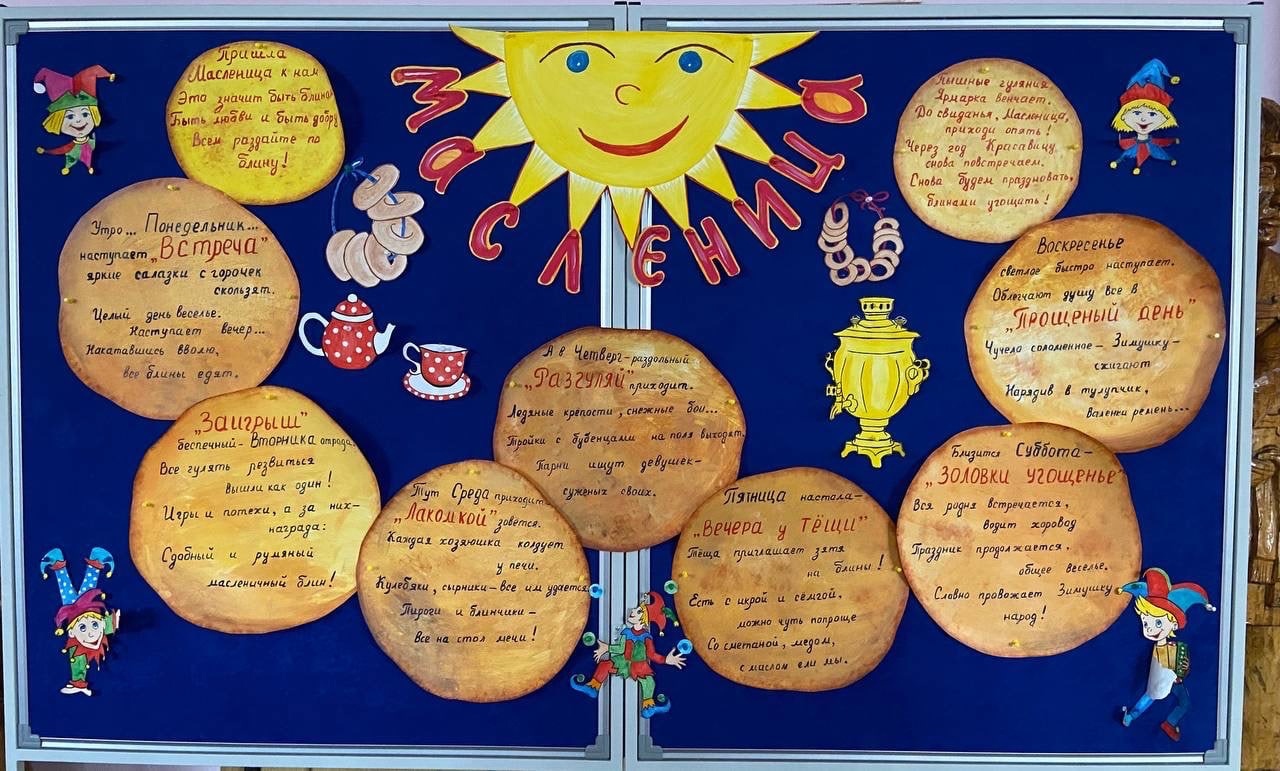 МАСЛЕНИЦА
Пришла
Масленица к нам
Это значит быть блинам
Быть любви и быть добру
Всем раздайте по
блину!
Утро... Понедельник...
наступает „Встреча”
яркие салазки с горочек
скользят.
Целый день веселье.
Наступает вечер...
Накатавшись вволю,
все блины едят.
„Заигрыш”
беспечный- Вторника отрада.
Все гулять резвиться
вышли как один!
Игры и потехи, а за них-
награда:
Сдобный и румяный
масленичный блин!
Тут Среда приходит
„Лакомкой” зовётся.
Каждая хозяюшка колдует
у печи.
Кулебяки, сырники-все им удается
Пироги и блинчики-
Все на стол мечи!
А в Четверг-раздольный
„Разгуляй” приходит.
Ледяные крепости, снежные бои...
Тройки с бубенцами на поля выходят.
Парни ищут девушек-
суженых своих.
Пятница настала-
„Вечера у тёщи”
Тёща приглашает зятя
на блины!
Есть с икрой и сёмгой,
можно чуть попроще
Со сметаной, медом,
с маслом ели мы.
Близится Суббота-
„Золовки угощенье”
Вся родня встречается,
водит хоровод
Праздник продолжается,
общее веселье.
Словно провожает Зимушку
народ!
Воскресенье
светлое быстро наступает.
Облегчают душу все в
„Прощеный день”
Чучело соломенное- Зимушку-
сжигают
Нарядив в тулупчик,
валенки ремень...
Пышные гуляния
Ярмарка венчает.
До свиданья, Масленица,
приходи опять!
Через год Красавицу
снова повстречаем.
Снова будем праздновать,
блинами угощать!